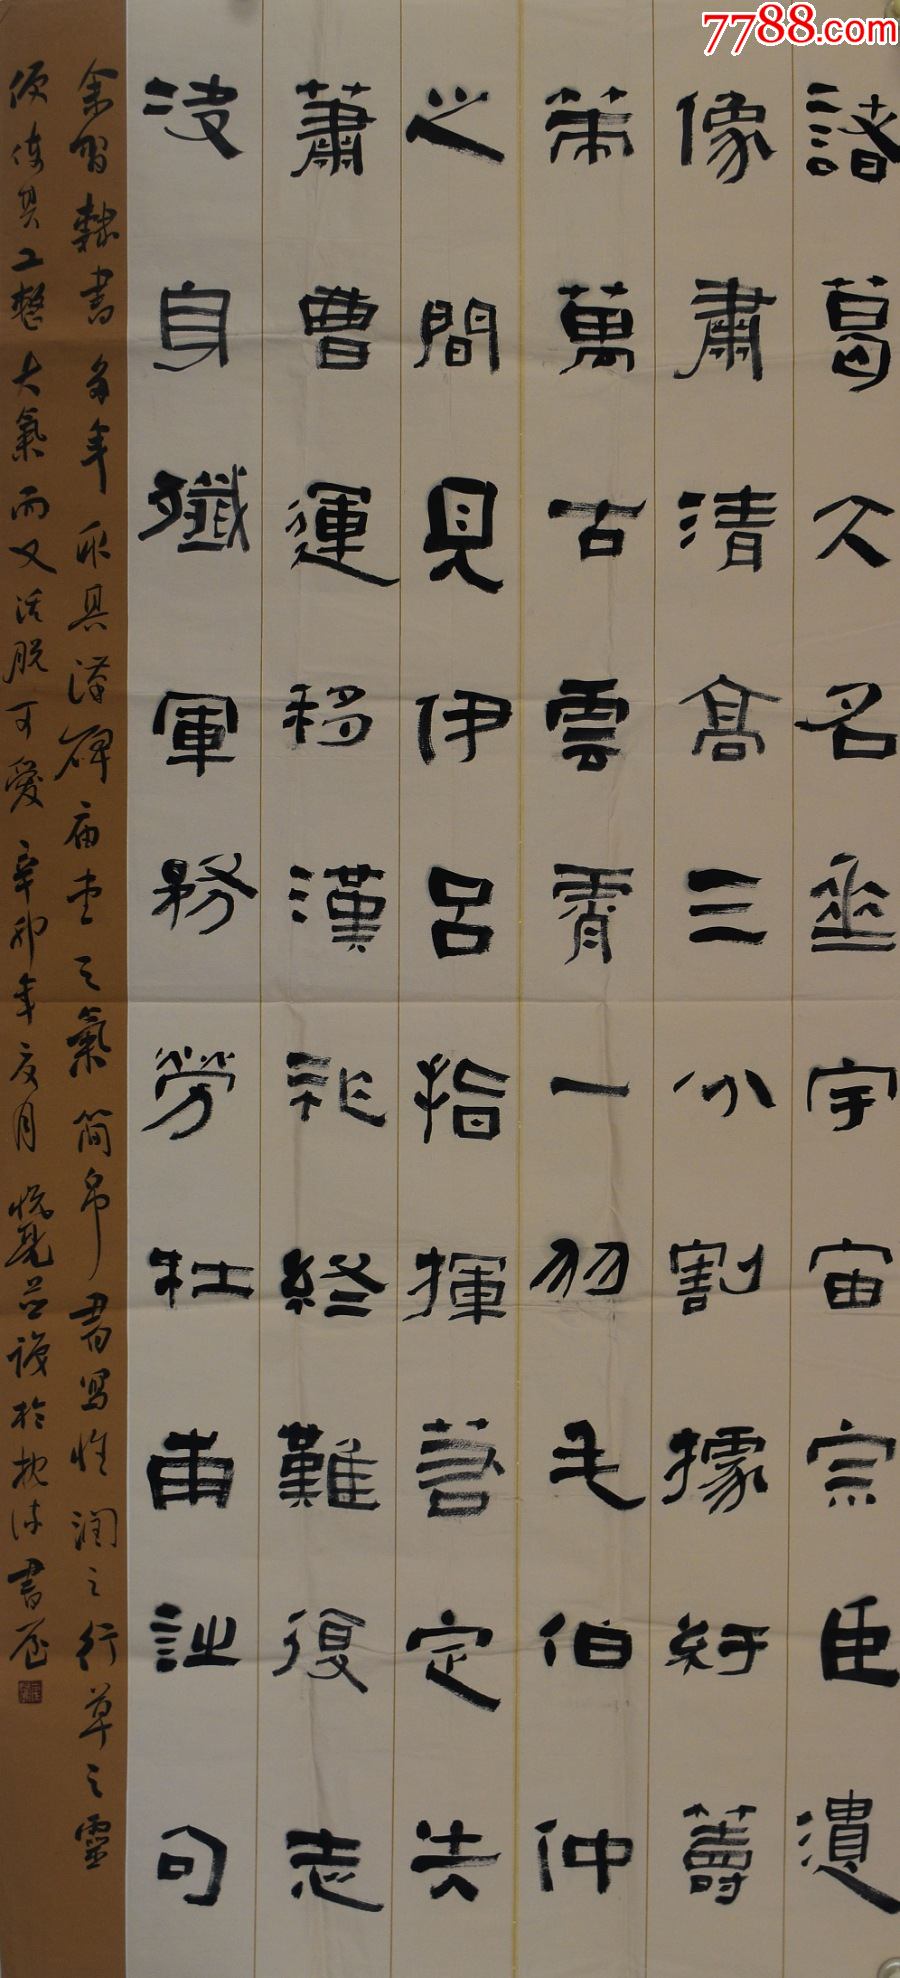 7788.com
諸葛大名垂宇宙宗臣遺
像肅清高三分割據紆籌
策萬古雲霄一羽毛伯仲
之間見伊呂指揮若定失
蕭曹運移漢祚終難復志
決身殲軍務勞杜甫詩句
余習隸書多年求其漢碑庙堂之氣简帛書写性润之行草之靈
便使其工整大氣而又活脫可愛辛卯年夏月